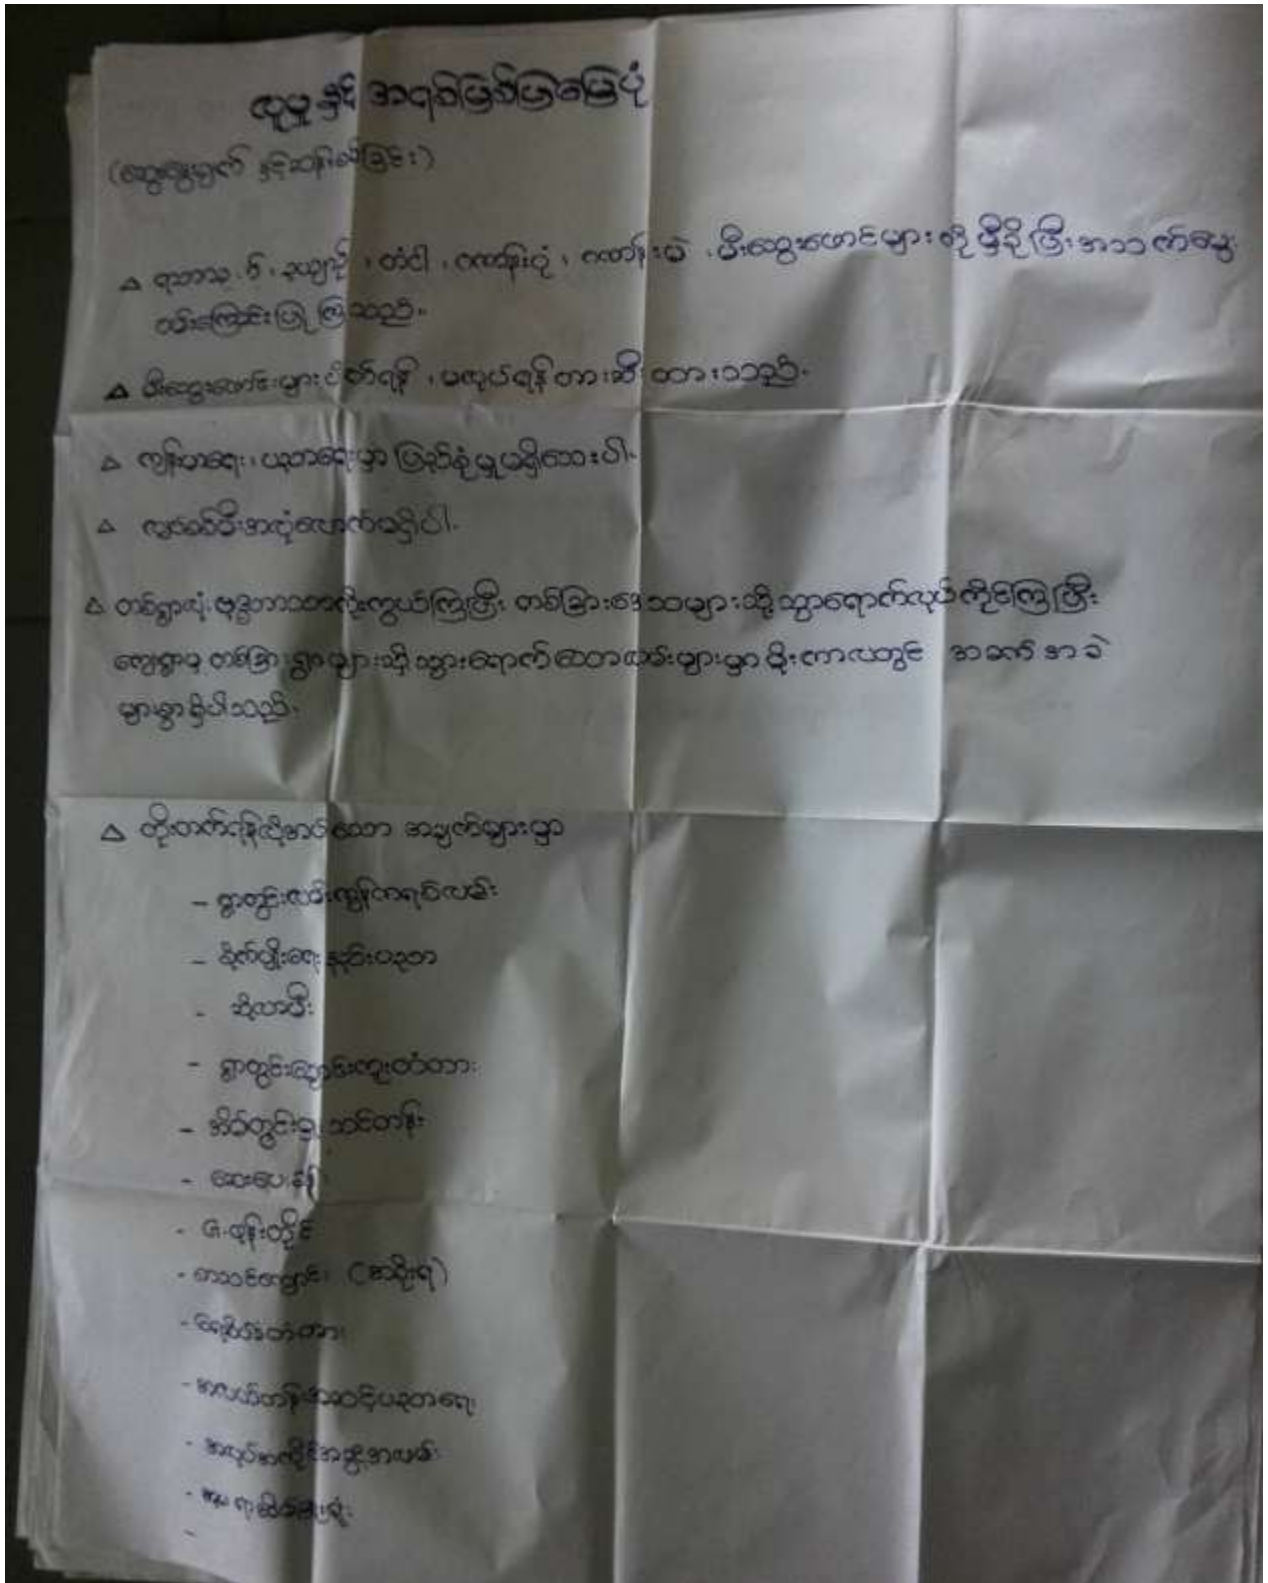 လူမှု နှင့် အရင်းအမြစ်ပြမြေပုံ
(ဆွေးနွေးချက် နှင့်ဆန်းစစ်ခြင်း)
△ ရာဘာ တံငါ ၊ ဂဏန်းပုံး ၊ ဂဏန်းမဲ ၊ မီးသွေးဖောင်များ ကို မှီခိုပြီး အသက်မွေး
ဝမ်းကြောင်းပြုကြသည်။
△ မီးသွေးဖောင်များ ပိတ်ရန် ၊ မလုပ်ရန် တားဆီး ထားသည်။
△ ကျန်းမာရေး ၊ ပညာရေးမှာ ပြည့်စုံမှုမရှိသေးပါ။
△ လျှပ်စစ်မီးအလုံလောက်မရှိပါ။
△ တစ်ရွာလုံး ဗုဒ္ဓဘာသာကိုးကွယ်ကြပြီး တစ်ခြားဒေသများသို့ သွားရောက်လုပ်ကိုင်ကြပြီး
ကျေးရွာမှ တစ်ခြားရွာများသို့ သွားရောက်သောလမ်းများမှာ မိုးကာလတွင် အခက်အခဲ
များစွာရှိပါသည်။
△ တိုးတက်ရန်လိုအပ်သော အချက်များမှာ
- ရွာတွင်းလမ်းကွန်ကရစ်လမ်း
- စိုက်ပျိုးရေးနည်းပညာ
- ဆိုလာမီး
- ရွာတွင်းချောင်းကူးတံတား
- အိမ်တွင်းမှု သင်တန်း
- ဆေးပေးခန်း
- G.ဖုန်းတိုင်
- စာသင်ကျောင်း (အစိုးရ)
- ရေဆိပ်တံတား
- အလယ်တန်းအဆင့်ပညာရေး
- အလုပ်အကိုင်အခွင့်အလမ်း
-